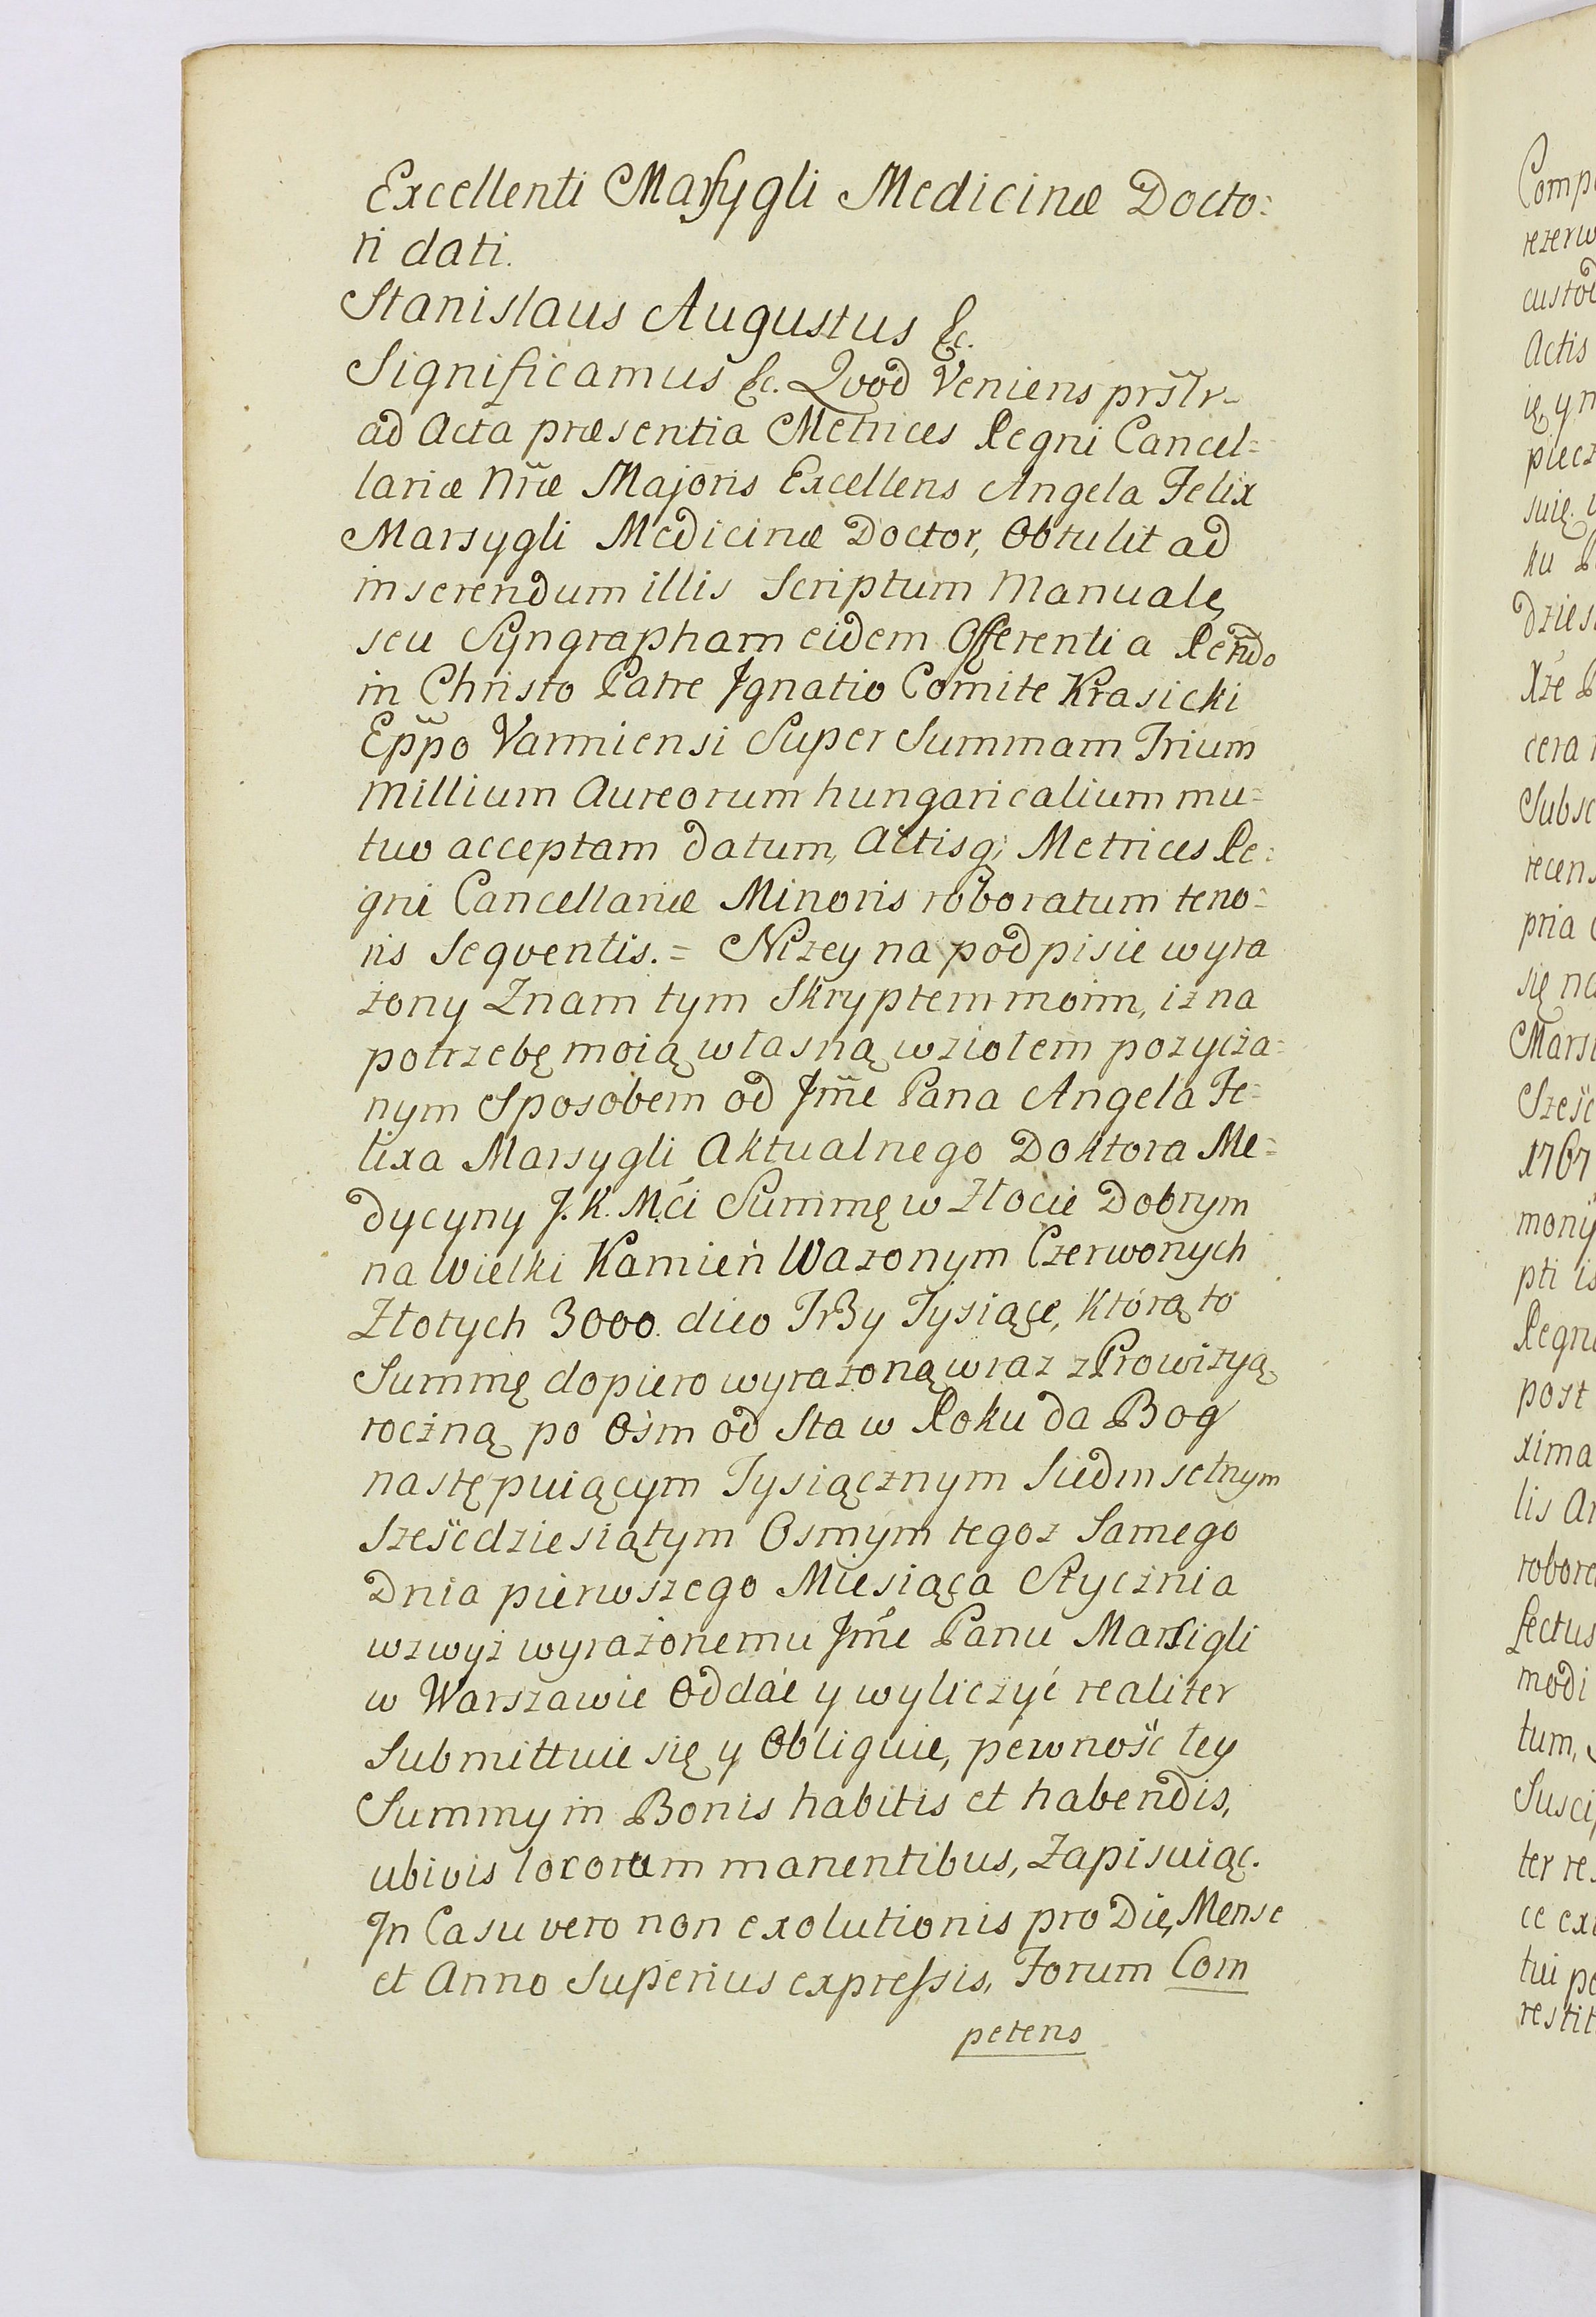 Excellenti Marsygli Medicinæ Docto=
ri dati.
Stanislaus Augustus &c.
Significamus &c. Qvod Veniens prsltr
ad Acta præsentia Metrices Regni Cancel=
lariæ Nræ Majoris Excellens Angela Felix
Marsygli Medicinæ Doctor, Obtulit ad
inserendum illis Scriptum Manuale,
seu Syngrapham eidem Offerenti a Rendo
in Christo Patre Ignatio Comite Krasicki
Eppo Varmiensi Super Summam Trium
Millium Aureorum hungaricalium mu=
tuo acceptam datum, Actisq; Metrices Re=
gni Cancellariæ Minoris roboratum teno=
ris Seqventis. = Niżey na podpisie wyra
żony Znam tym Skryptem moim, iż na
potrzebę moią własną wziołem pozycza=
nym Sposobem od Jme Pana Angela Fe=
lixa Marsygli Aktualnego Doktora Me=
dycyny J. K. Mći Summę w Złocie Dobrym
na Wielki Kamień Ważonym Czerwonych
Złotych 3000. dico TrZy Tysiące, którą to
Summę dopiero wyrażoną wraz z Prowizyą
roczną po Ośm od Sta w Roku da Bog
następuiącym Tysiącznym Siedmsetnym
Sześćdziesiątym Osmym tegoż Samego
Dnia pierwszego Miesiąca Stycznia
wzwyż wyrażonemu Jme Panu Marsigli
w Warszawie Oddać y wyliczyć realiter
Submittuie się y Obliguie, pewność tey
Summy in Bonis habitis et habendis,
ubivis locorum manentibus, Zapisuiąc.
In Casu vero non exolutionis pro Die, Mense
et Anno Superius expressis, Forum Com
petens